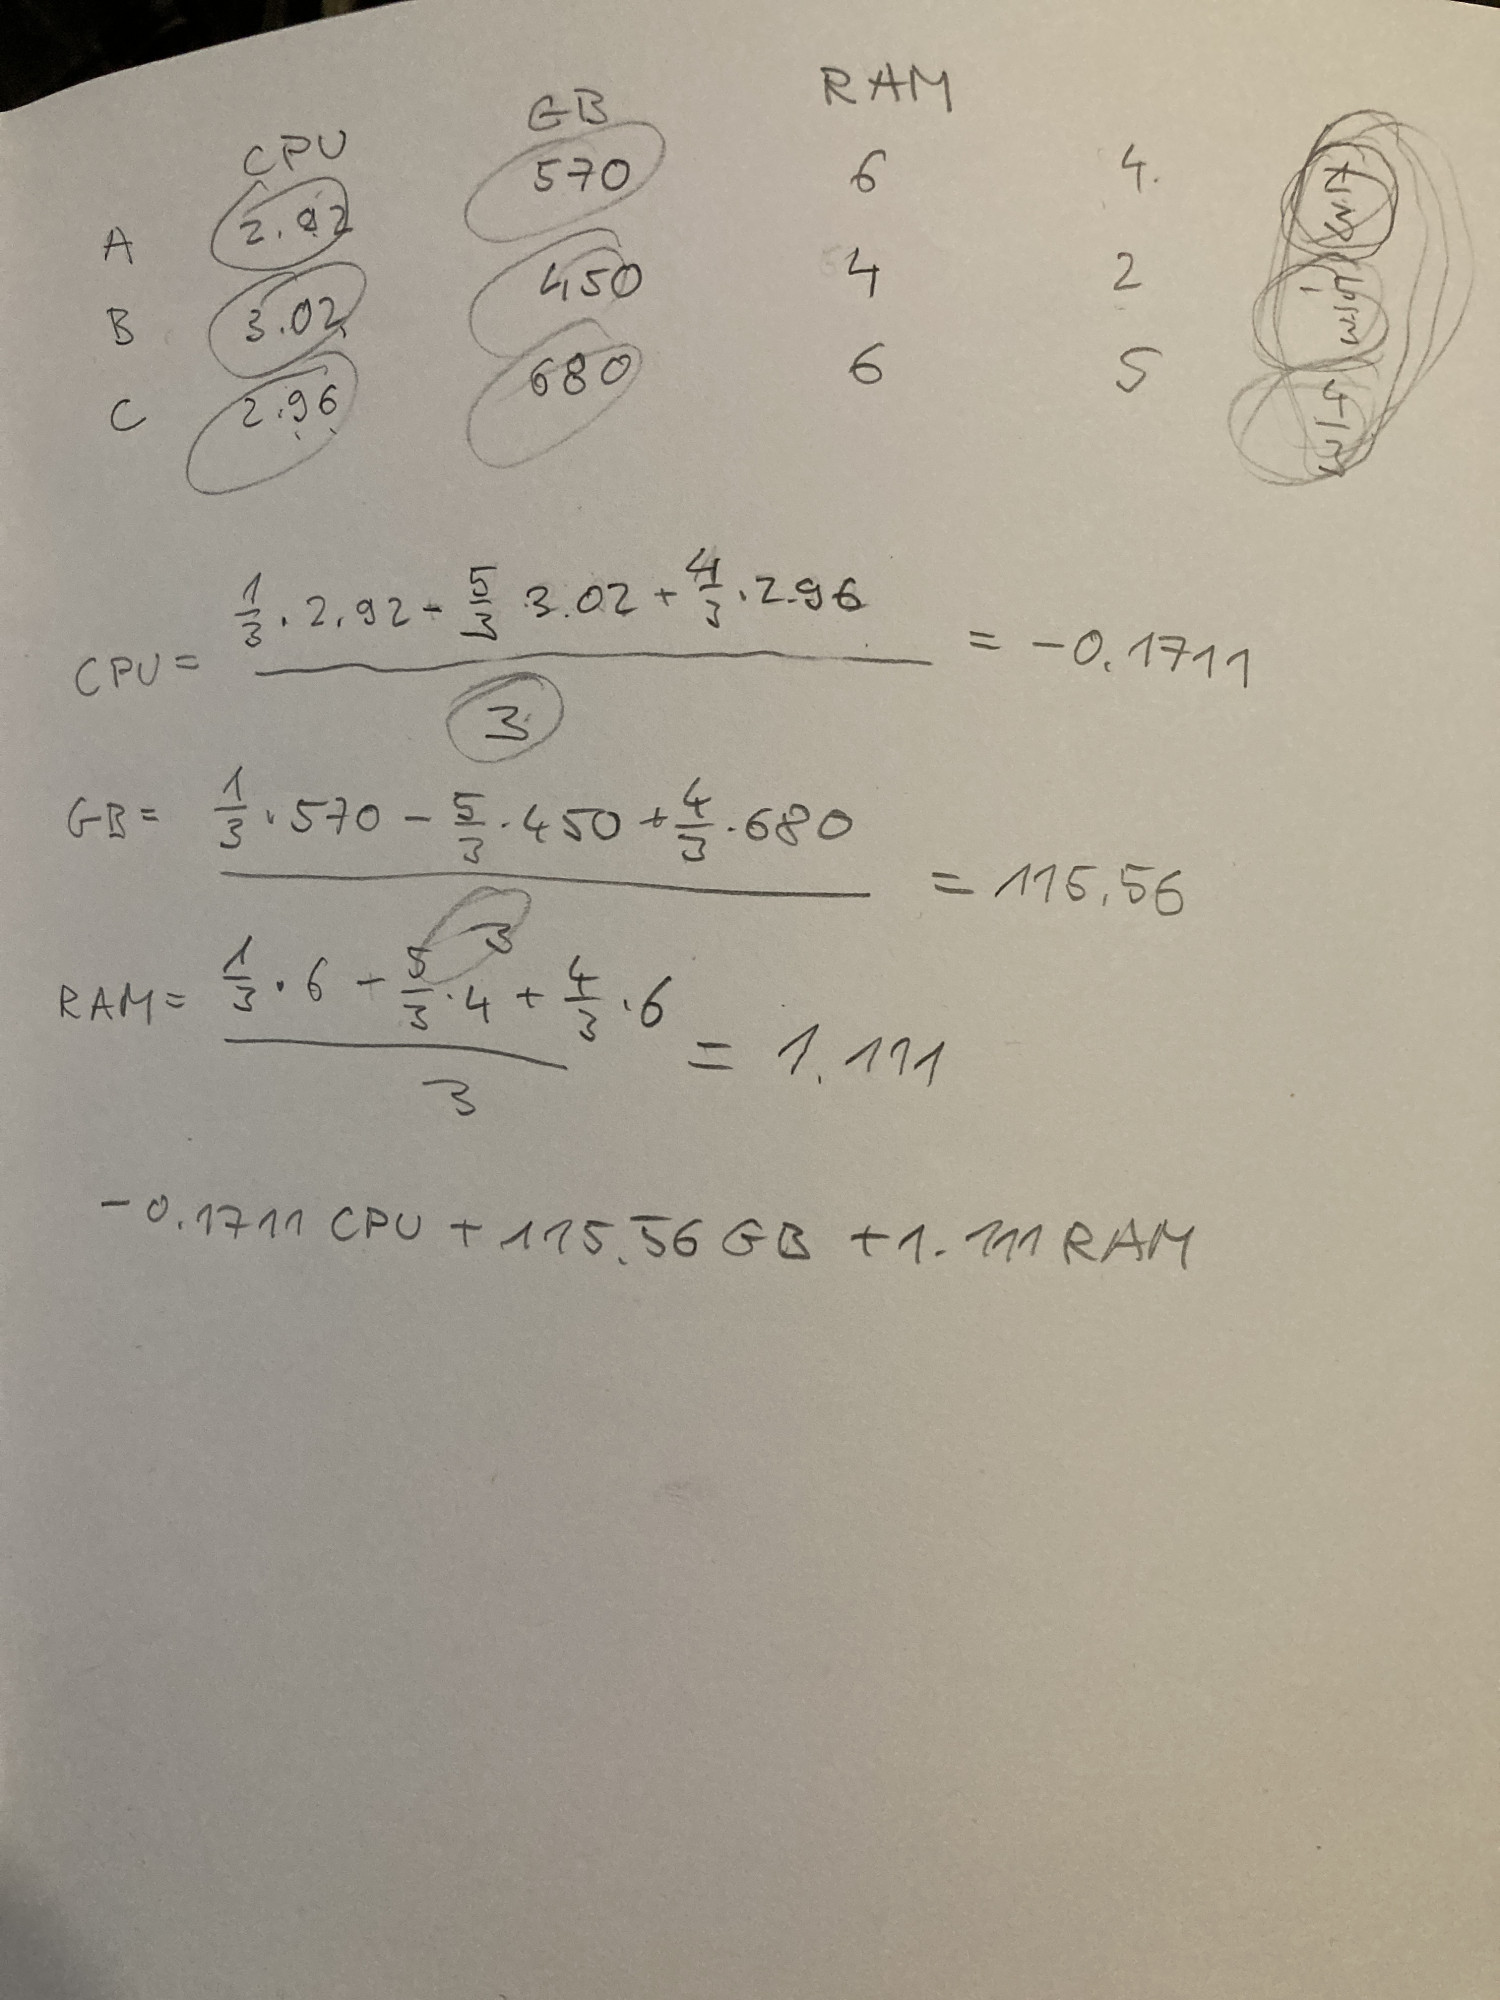 CPU GB RAM
A 2.92 570 6 4
B 3.02 450 4 2
C 2.96 680 6 5
CPU = (1/3 · 2.92 - 5/3 3.02 + 4/3 · 2.96) / 3 = -0.1711
GB = (1/3 · 570 - 5/3 · 450 + 4/3 · 680) / 3 = 115.56
RAM = (1/3 · 6 - 5/3 · 4 + 4/3 · 6) / 3 = 1.111
-0.1711 CPU + 115.56 GB + 1.111 RAM